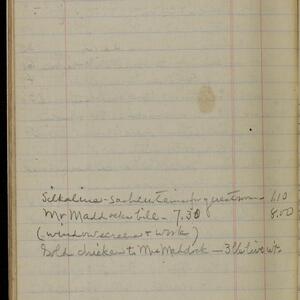 Silkaline - sash curtains for guestroom - 1.10
Mr Maddocks bill - 7.30 8.00
(window screens + work)
Sold chicken to Mrs Maddock - 3 lb live wt.